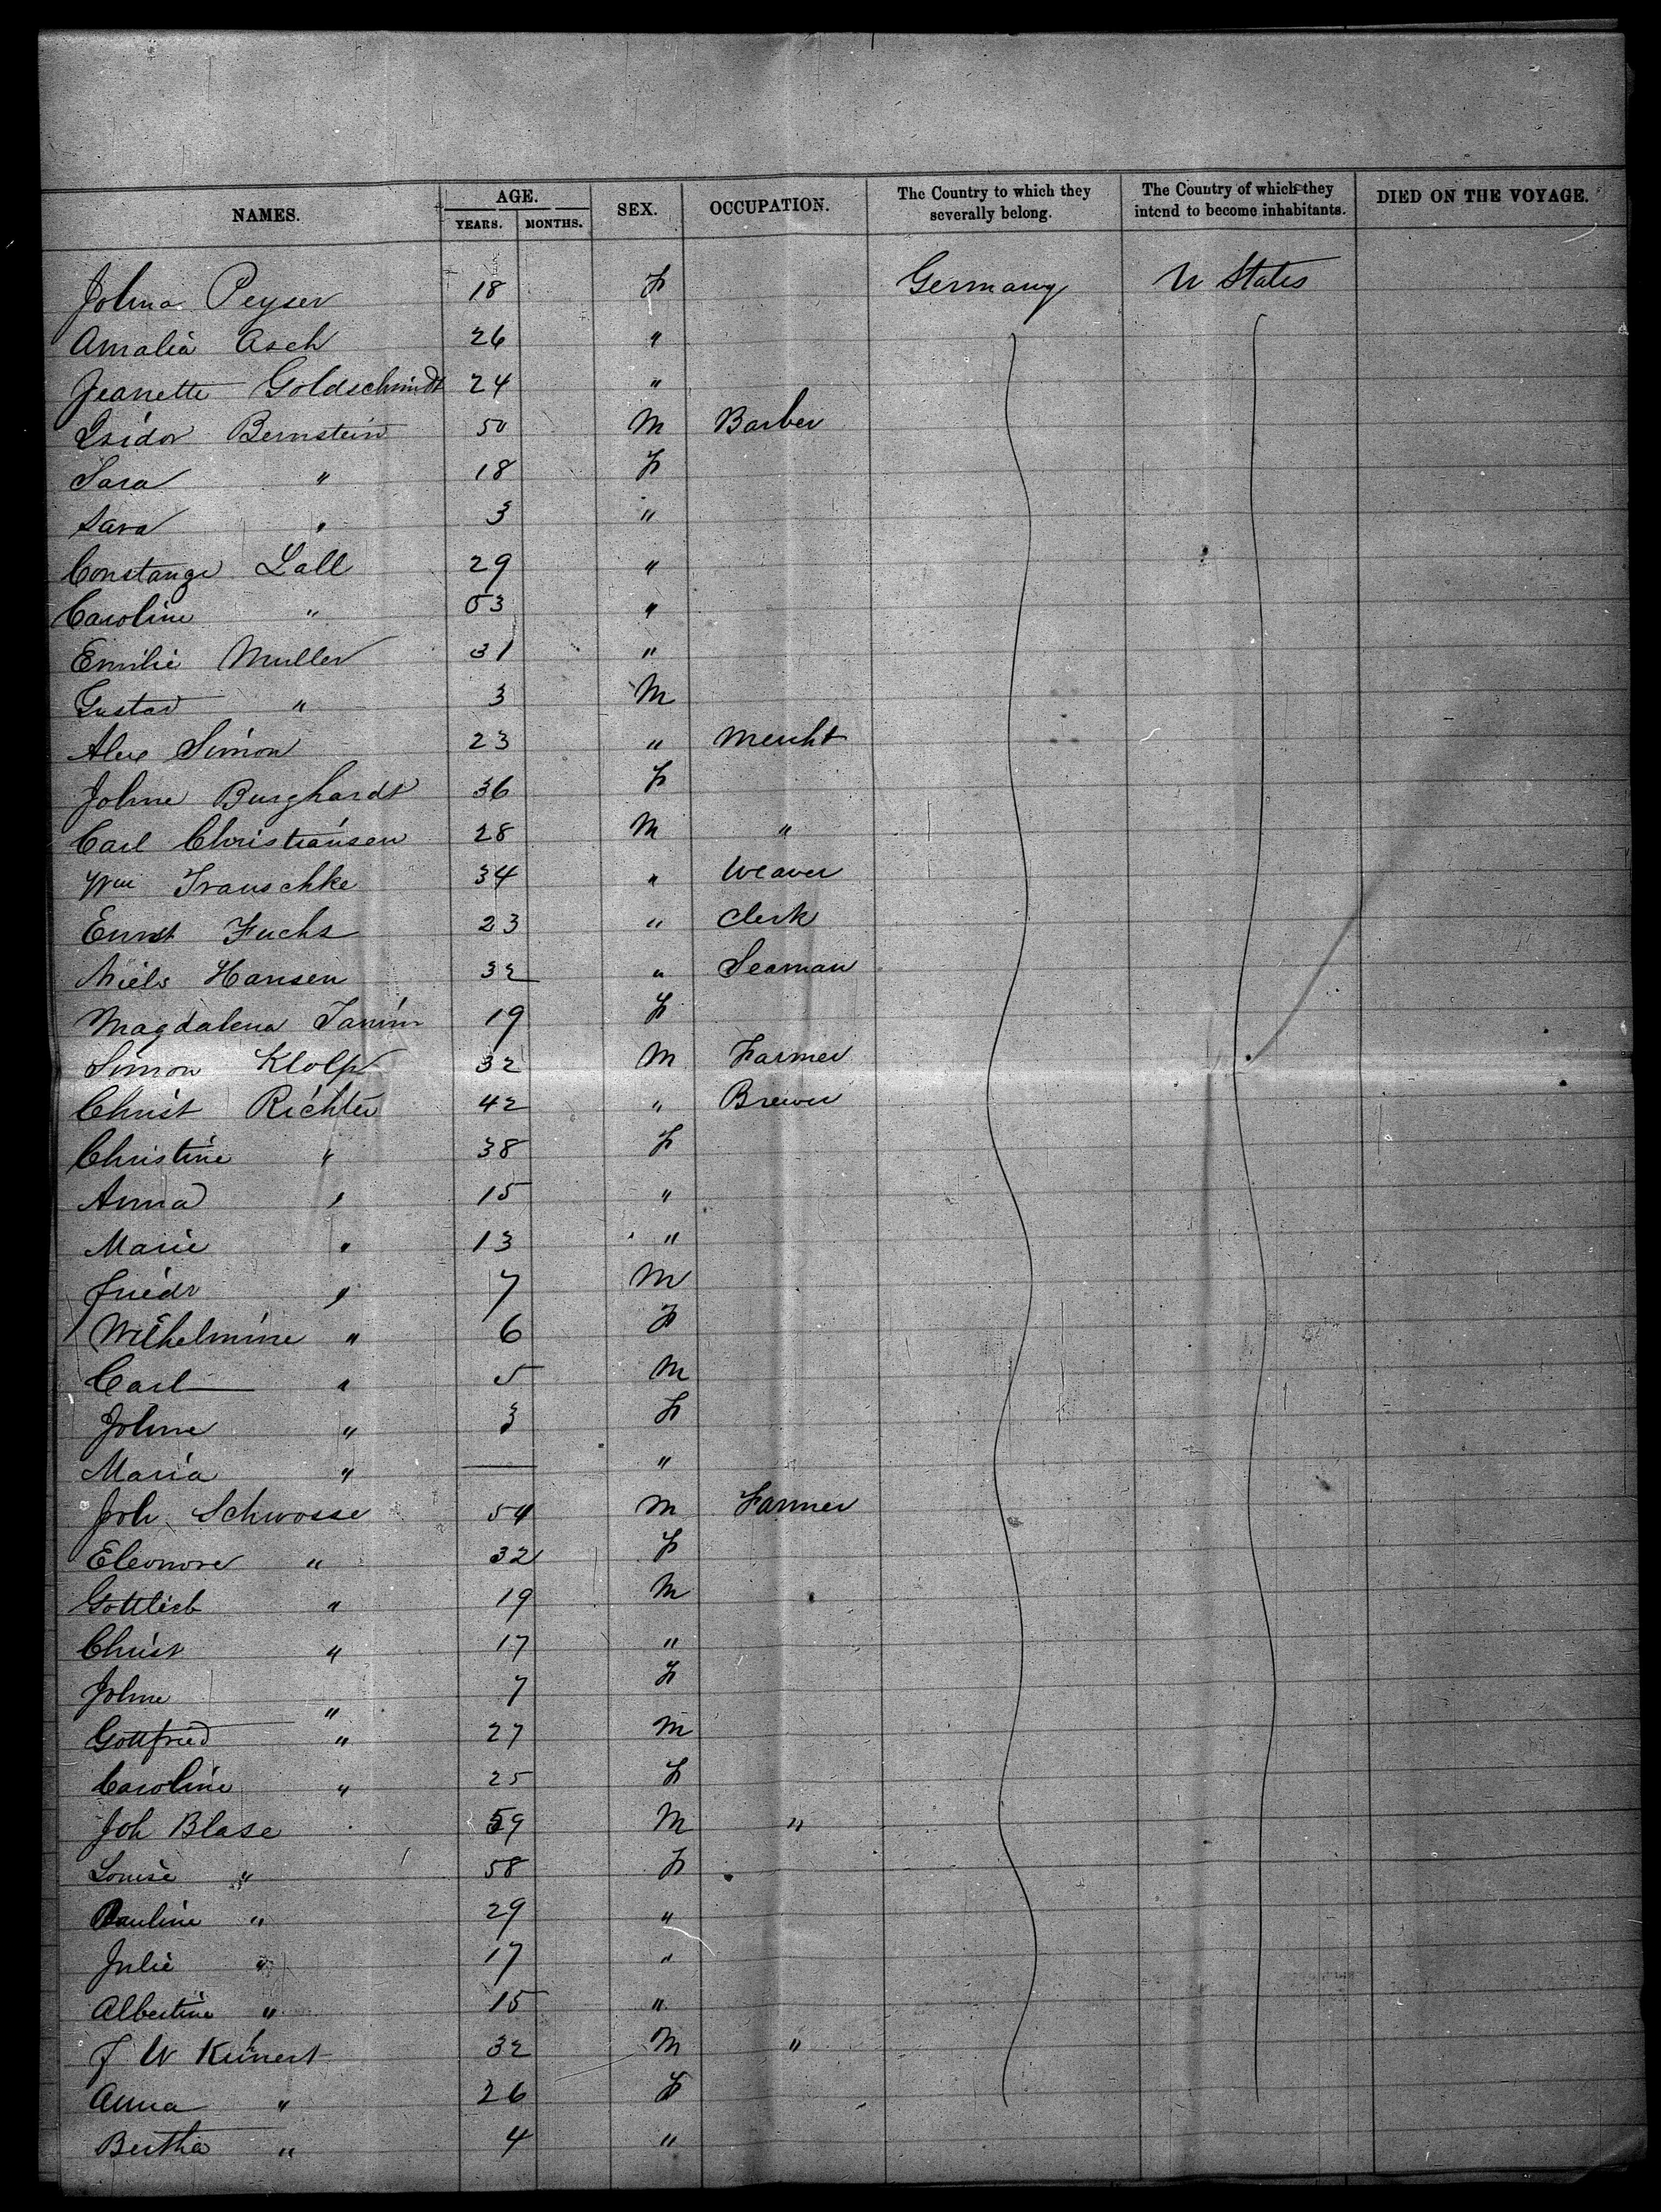 NAMES. AGE. YEARS. MONTHS. SEX. OCCUPATION. The Country to which they severally belong. The Country of which they intend to become inhabitants. DIED ON THE VOYAGE.
Johna Peyser 18 F Germany U States
Amalia Asch 26 "
Jeanette Goldschmidt 24 "
Isidor Bernstein 50 M Barber
Sara " 18 F
Sara " 3 "
Constanze Lall 29 "
Caroline " 53 "
Emilie Muller 31 "
Gustav " 3 M
Alex Simon 23 " Mercht
Johne Burghardt 36 F
Carl Christiansen 28 M "
Wm Trauschke 34 " Weaver
Ernst Fuchs 23 " Clerk
Niels Hansen 32 " Seaman
Magdalena Tamm 19 F
Simon Klolp 32 M Farmer
Christ Richter 42 " Brewer
Christine " 38 F
Anna " 15 "
Marie " 13 "
Friedr " 7 M
Wilhelmine " 6 F
Carl " 5 M
Johne " 3 F
Maria " — "
Joh Schwosse 54 M Farmer
Eleonore " 32 F
Gottlieb " 19 M
Christ " 17 "
Johne " 7 F
Gottfried " 27 M
Caroline " 25 F
Joh Blase 59 M "
Louise " 58 F
Pauline " 29 "
Julie " 17 "
Albertine " 15 "
F W Kuhnert 32 M "
Anna " 26 F
Bertha " 4 "